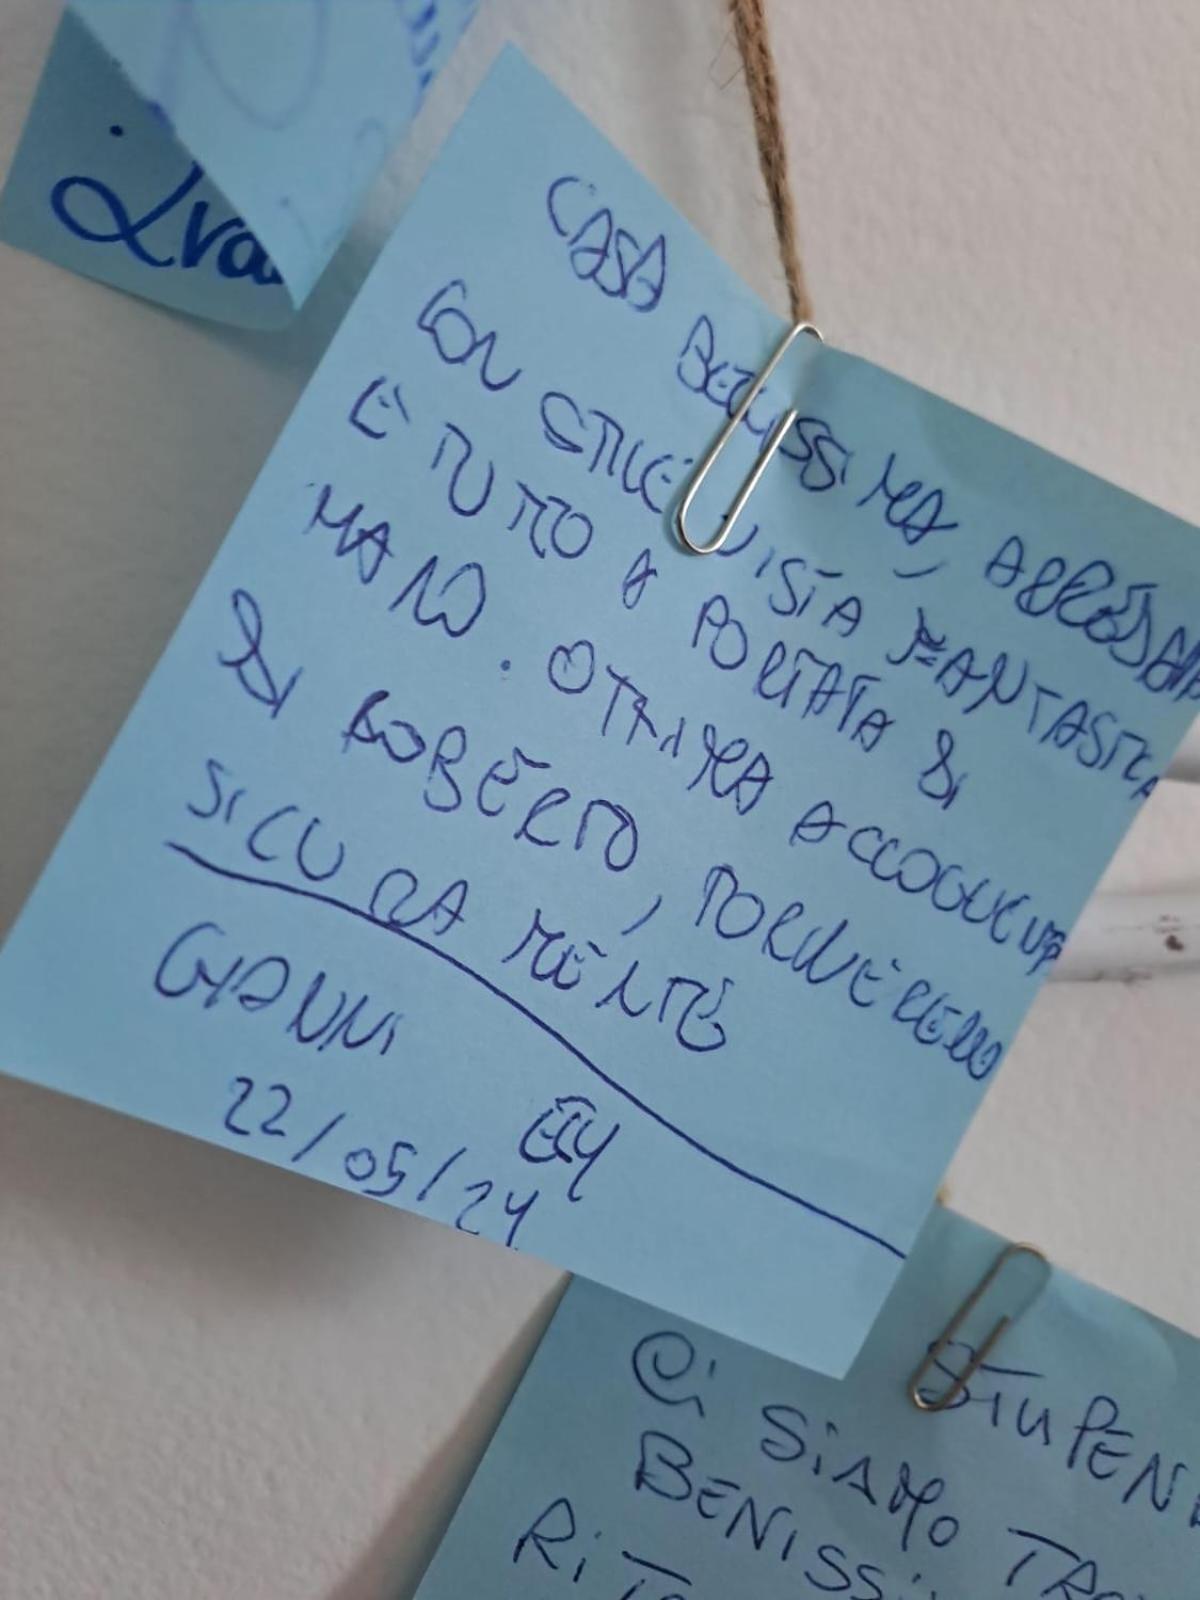 Gra
CASA BELLISSIMA, ARREDATA
CON STILE VISTA FANTASTICA
E TUTTO A PORTATA DI
MANO. OTTIMA ACCOGLIENZA
DI ROBERTO, TORNEREMO
SICURAMENTE
GIANNI
ELY
22/05/24
STUPEN
Ci SiAMO TRO
BENISSi
RiTO